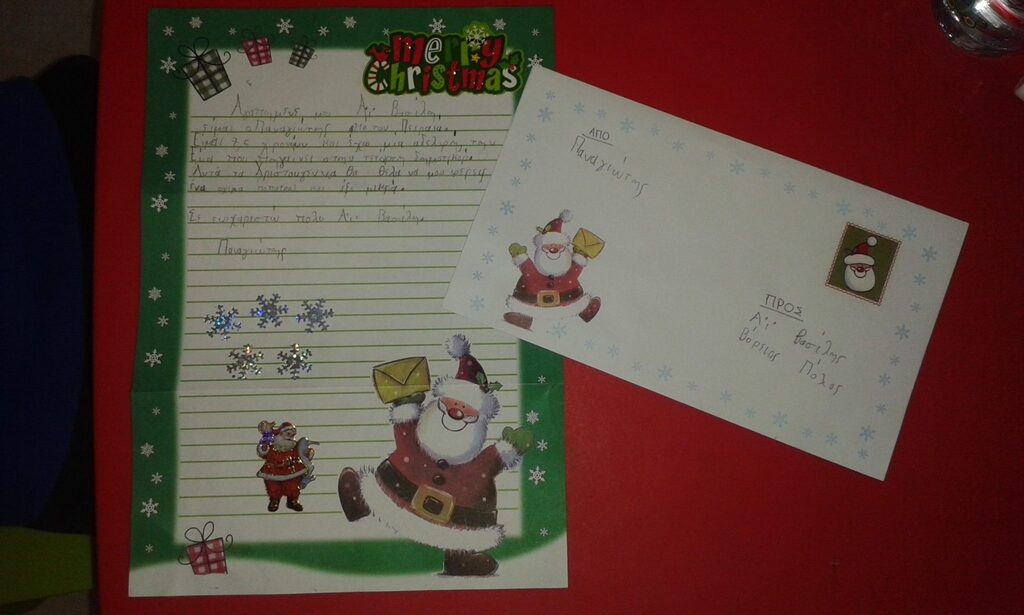 merry
christmas
Αγαπημένε μου Άϊ Βασίλη,
είμαι ο Παναγιώτης από τον Πειραιά.
Είμαι 7,5 χρονών και έχω μια αδελφή την
που πηγαίνει στην τετάρτη δημοτικού.
Αυτά τα Χριστούγεννα θα θελα να μου φέρεις
ένα και
Σε ευχαριστώ πολύ Άϊ Βασίλη.
Παναγιώτης
ΑΠΟ
Παναγιώτης
ΠΡΟΣ
Άϊ Βασίλης
Βόρειος Πόλος